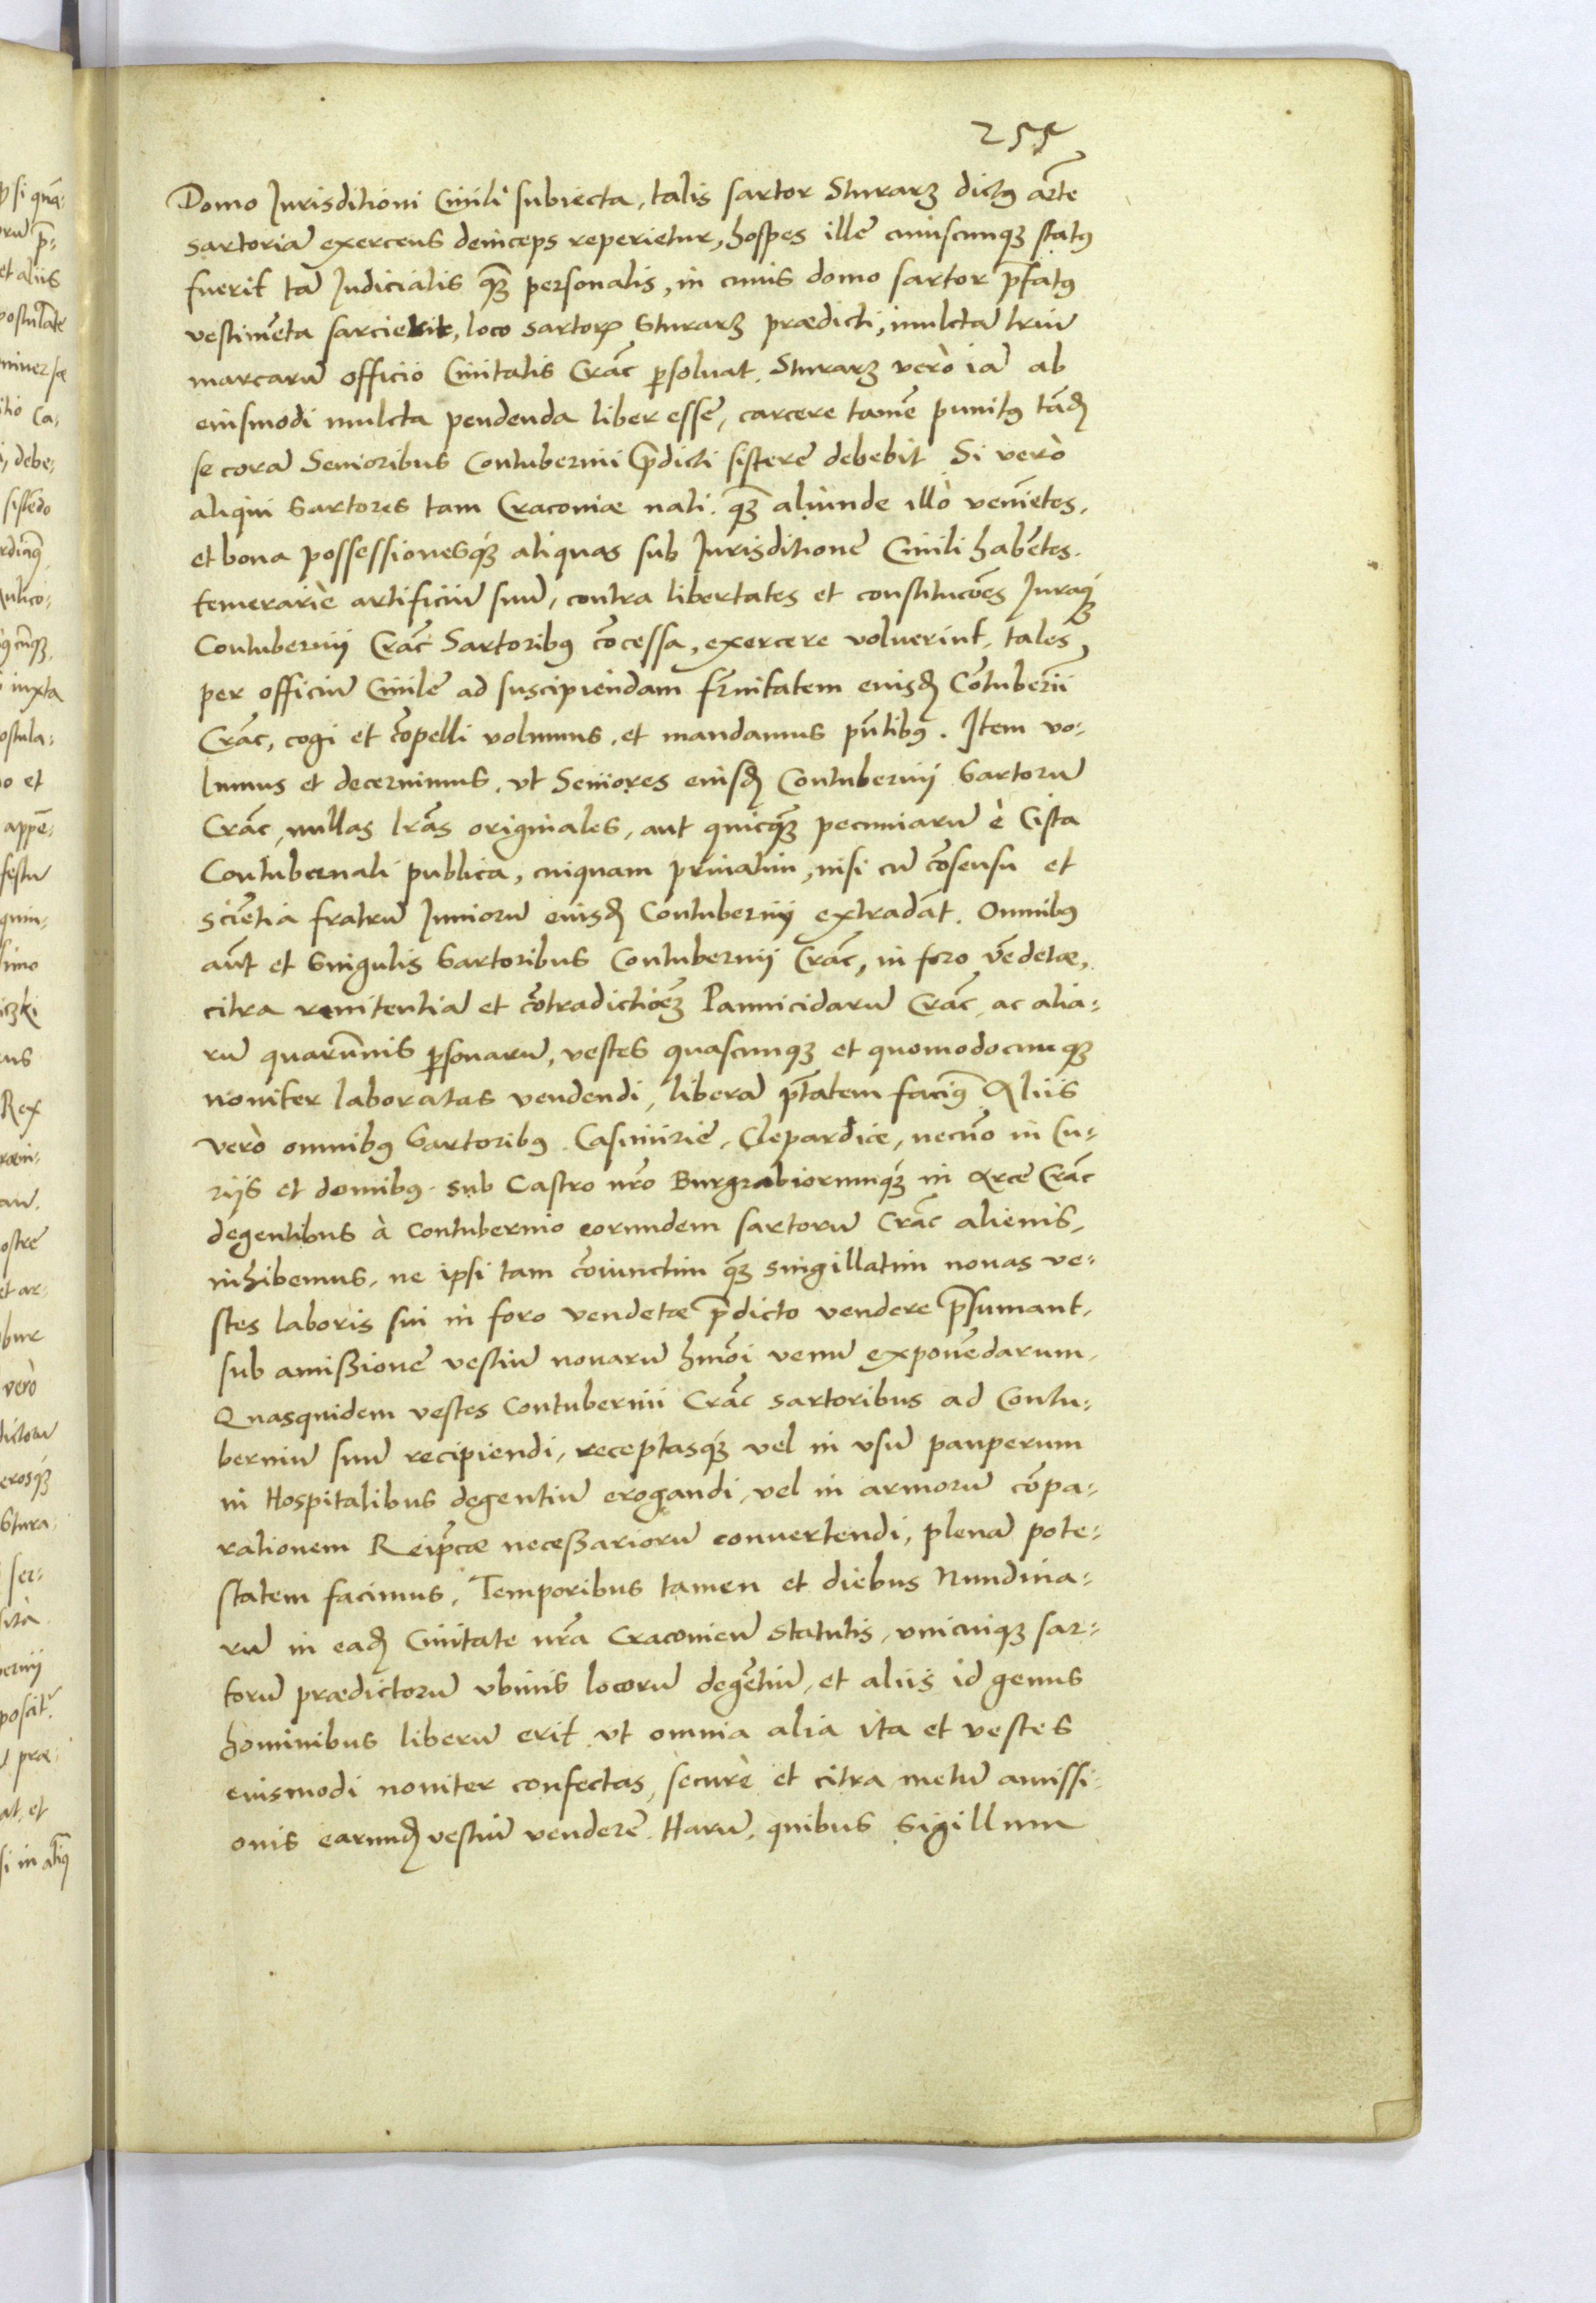 255
Domo Iurisditioni Ciuili subiecta, talis sartor Sturarz dictꝰ arte᷈
sartoria᷈ exercens deinceps reperietur, hospes ille cuiuscunqꝫ statꝰ
fuerit ta᷈ Iudicialis qua᷈ꝫ personalis, in cuius domo sartor p᷈fatꝰ
vestime᷈ta sarcierit, loco sartorꝭ Sturarz prædicti, mulcta᷈ triu᷈
marcaru᷈ officio Ciuitatis Crac᷈ ꝑsoluat. Sturarz verò ia᷈ ab
eiusmodi mulcta pendenda liber esse, carcere tame᷈ punitꝰ ta᷈dē
se cora᷈ Senioribus Contubernii p᷈dicti sistere debebit Si verò
aliqui Sartores tam Craconiæ nati. qua᷈ꝫ aliunde illò venie᷈tes.
et bona possessionesqꝫ́ aliquas sub Iurisditione᷈ Ciuili habe᷈tes.
temerariè artificiu᷈ suu᷈, contra libertates et constituco᷈es Iuraqꝫ́
Contubernij Crac᷈ Sartoribꝰ co᷈cessa, exercere voluerint, tales,
per officiu᷈ Ciuile᷈ ad suscipiendam fr᷈nitatem eiusd᷈ Co᷈tuber᷈ii
Crac᷈, cogi et co᷈pelli volumus, et mandamus pn᷈tibꝰ. Item vo:
lumus et decernimus, vt Seniores eiusd᷈ Contubernij Sartoru᷈
Crac᷈, nullas lr᷈as originales, aut quicqua᷈ꝫ pecuniaru᷈ è Cista
Contubernali publica, cuiquam priuatim, nisi cu᷈ co᷈sensu et
scie᷈tia fratru᷈ Iunioru᷈ eiusd᷈ Contubernij extrada᷈t. Omnibꝰ
au᷈t et Singulis Sartoribus Contubernij Crac᷈, in foro ve᷈detæ,
citra renitentia᷈ et co᷈tradictio᷈eꝫ Pannicidaru᷈ Crac᷈, ac alia:
ru᷈ quaru᷈uis ꝑsonaru᷈, vestes quascunqꝫ et quomodocunqꝫ
nouiter laboratas vendendi, libera᷈ p᷈tatem facimꝰ Aliis
verò omnibꝰ Sartoribꝰ Casimirie, Clepardiæ, necno᷈ in Cu:
rijs et domibꝰ sub Castro nr᷈o Burgrabiorumqꝫ́ in Arce Crac᷈
degentibus à contubernio eorundem sartoru᷈ Crac᷈ alienis,
inhibemus, ne ipsi tam co᷈iunctim qua᷈ꝫ singillatim nouas ve:
stes laboris sui in foro vendetæ p᷈dicto vendere p᷈sumant,
sub amißione᷈ vestiu᷈ nouaru᷈ hmo᷈i venu᷈ expone᷈darum,
Quasquidem vestes Contubernii Crac᷈ sartoribus ad Contu:
berniu᷈ suu᷈ recipiendi, receptasqꝫ́ vel in vsu᷈ pauperum
in Hospitalibus degentiu᷈ erogandi, vel in armoru᷈ co᷈pa:
rationem Reip᷈cæ neceßarioru᷈ conuertendi, plena᷈ pote:
statem facimus. Temporibus tamen et diebus Nundina:
ru᷈ in ead᷈ Ciuitate nr᷈a Cracouien᷈ statutis, vnicuiqꝫ sar:
toru᷈ prædictoru᷈ vbiuis locoru᷈ dege᷈tiu᷈, et aliis id genus
hominibus liberu᷈ erit, vt omnia alia ita et vestes
eiusmodi nouiter confectas, securè et citra metu᷈ amissi:
onis earund᷈ vestiu᷈ vendere᷈. Haru᷈, quibus Sigillum